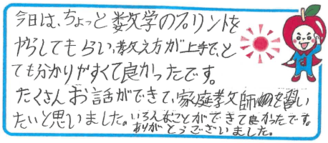 今日は、ちょっと数学のプリントを
やらしてもらい、教え方が上手で、と
ても分かりやすくて良かったです。
たくさんお話ができて、家庭教師を習い
たいと思いました。いろんなことができて良かったです。
ありがとうございました。